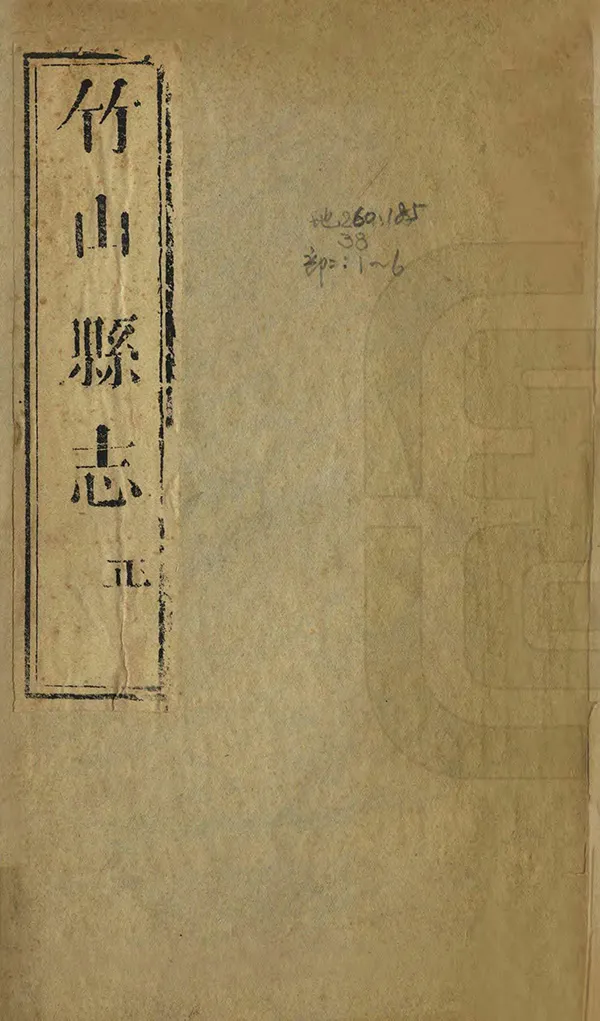 竹山縣志
正
地260.185
38
部二:1~6